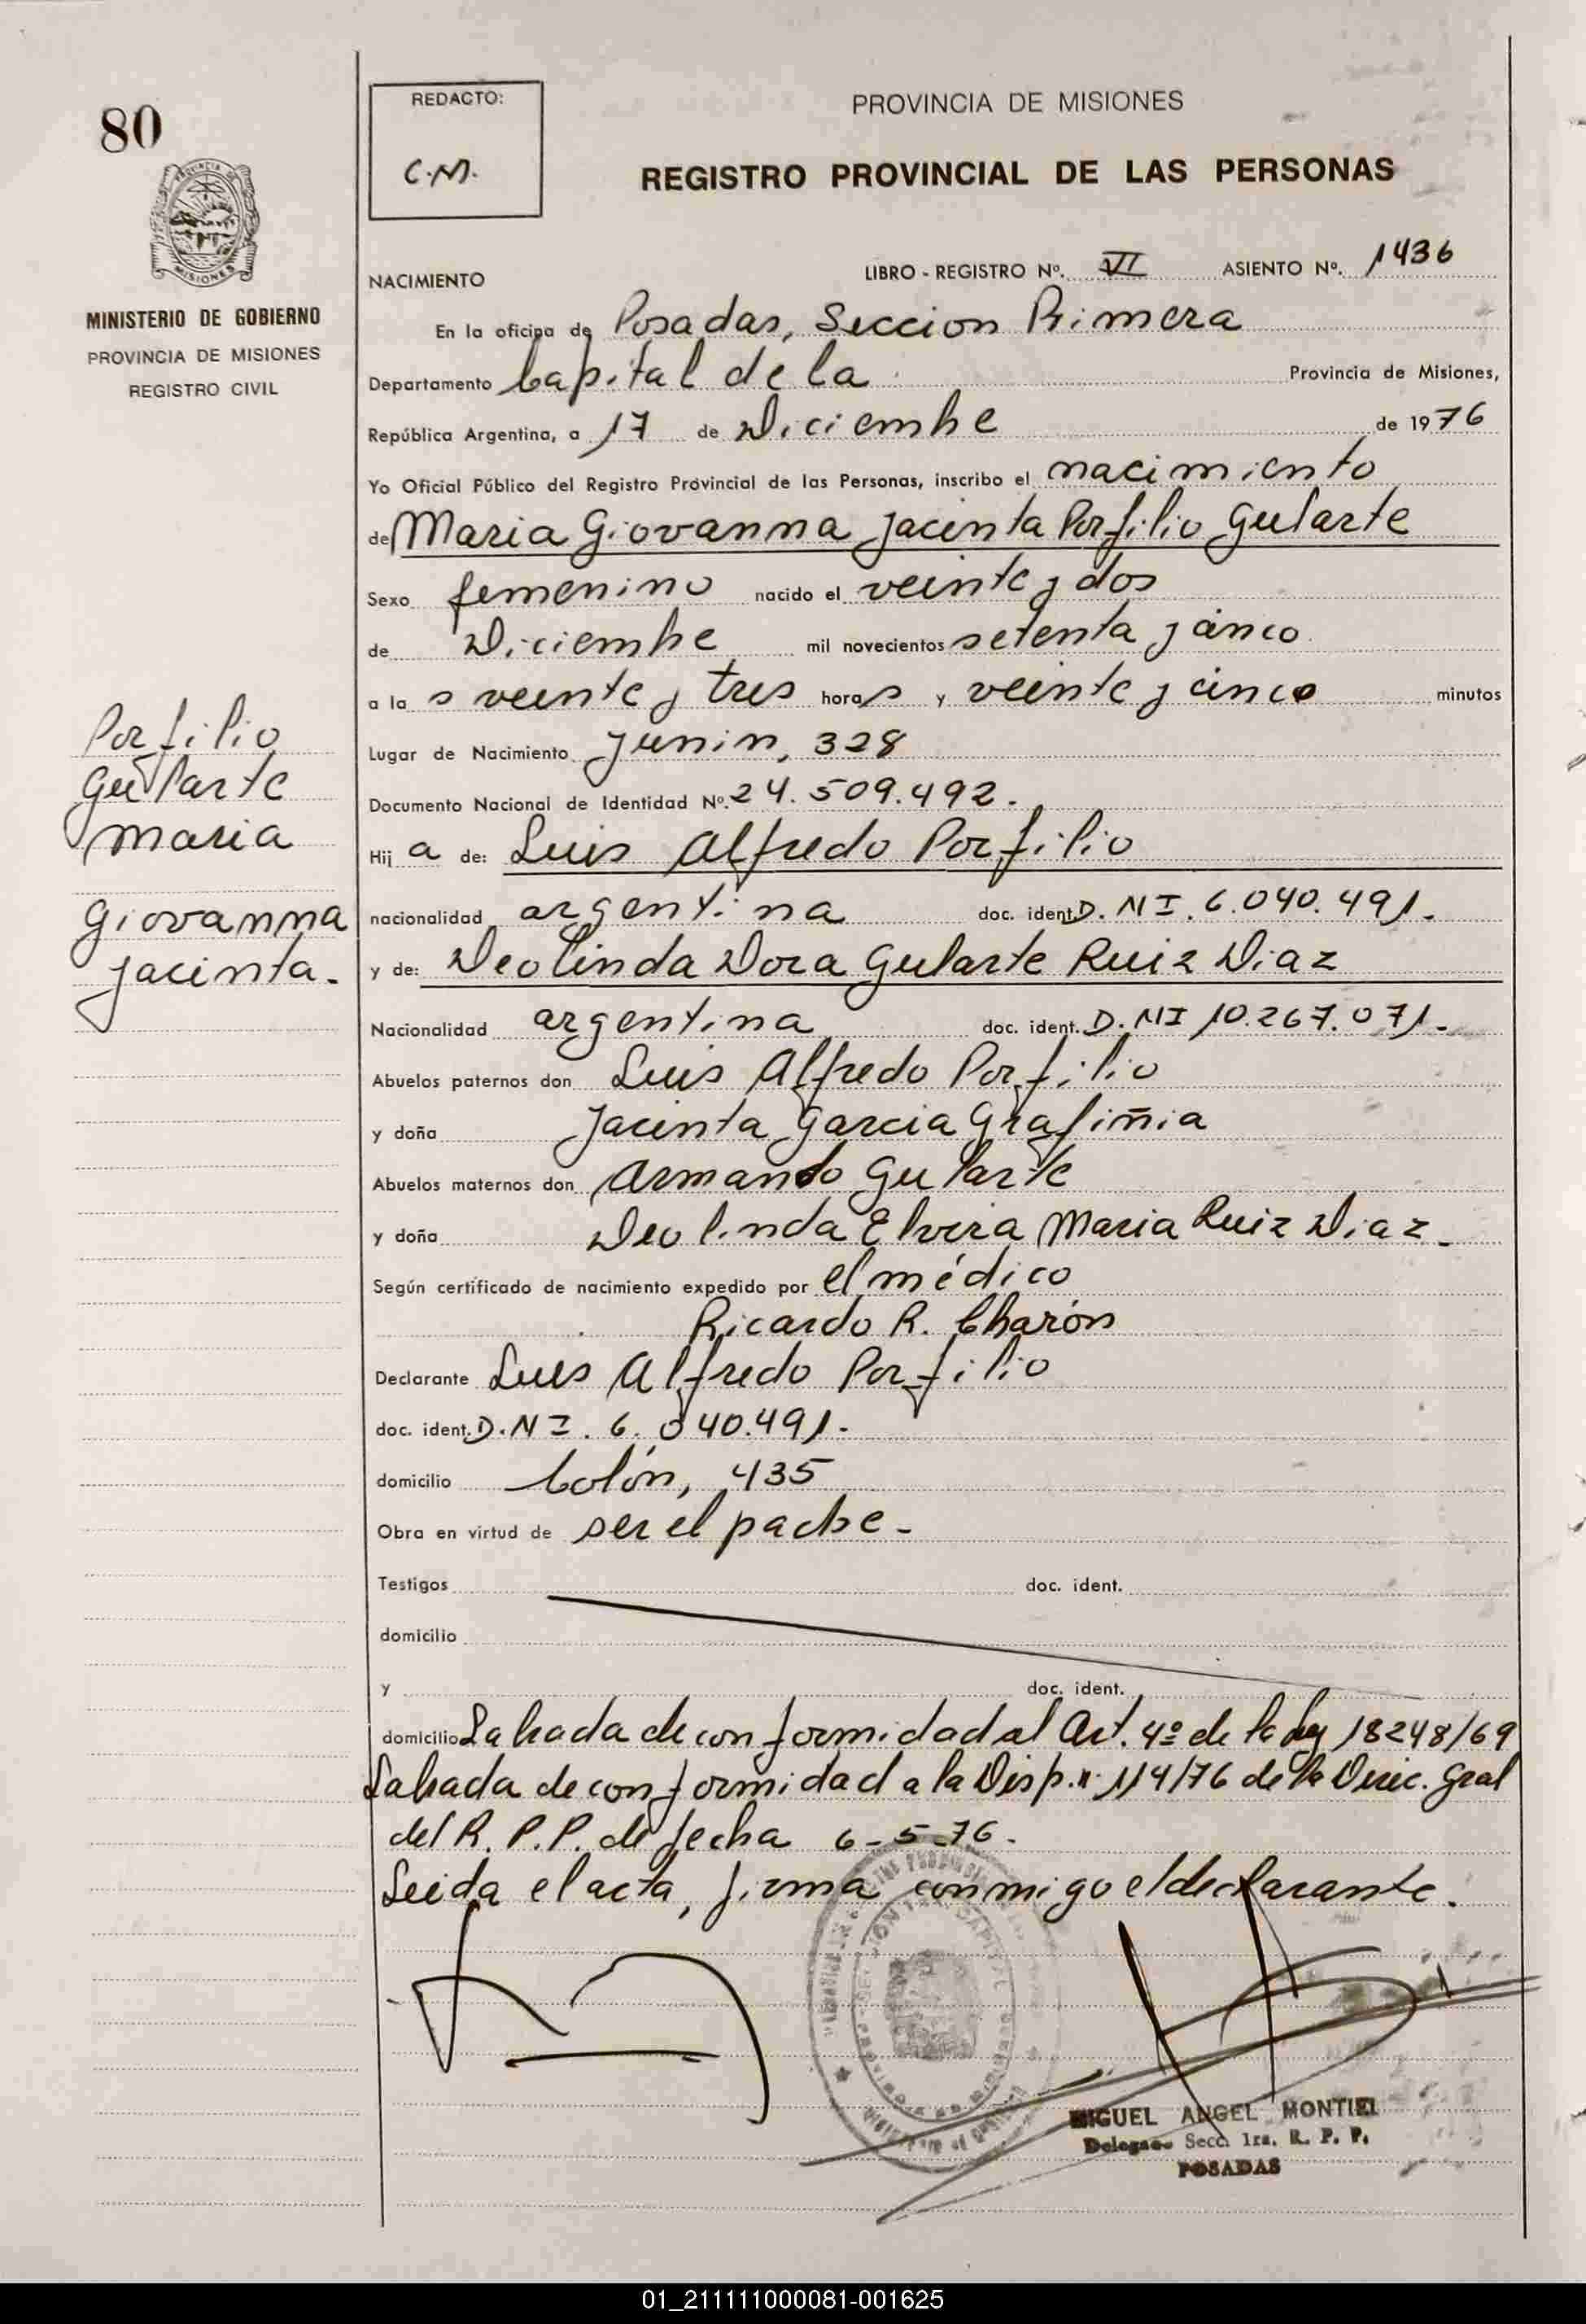 80
REDACTO:
C.M.
PROVINCIA DE MISIONES
REGISTRO PROVINCIAL DE LAS PERSONAS
MISIONES
MINISTERIO DE GOBIERNO
PROVINCIA DE MISIONES
REGISTRO CIVIL
NACIMIENTO LIBRO - REGISTRO Nº. VI ASIENTO Nº. 1436
En la oficina de Posadas, Seccion Primera
Departamento Capital de la Provincia de Misiones,
República Argentina, a 17 de Diciembre de 1976
Yo Oficial Público del Registro Provincial de las Personas, inscribo el nacimiento
de Maria Giovanna Jacinta Porfilio Gularte
Sexo femenino nacido el veinte y dos
de Diciembre mil novecientos setenta y cinco
a la s veinte y tres horas y veinte y cinco minutos
Lugar de Nacimiento Junin, 328
Documento Nacional de Identidad Nº. 24.509.492.
Hij a de: Luis Alfredo Porfilio
nacionalidad argentina doc. ident. D.NI. 6.040.491.
y de: Deolinda Dora Gularte Ruiz Diaz
Nacionalidad argentina doc. ident. D.NI 10.267.071.
Abuelos paternos don Luis Alfredo Porfilio
y doña Jacinta Garcia Grafiñia
Abuelos maternos don Armando Gularte
y doña Deolinda Elvira Maria Ruiz Diaz.
Según certificado de nacimiento expedido por el médico
Ricardo R. Charón
Declarante Luis Alfredo Porfilio
doc. ident. D.NI. 6.040.491.
domicilio Colón, 435
Obra en virtud de ser el padre.
Testigos doc. ident.
domicilio
y doc. ident.
domicilio Labrada de conformidad al Art. 4º de la Ley 18248/69
Labrada de conformidad a la Disp. nº 114/76 de la Direc. Gral
del R. P. P. de fecha 6-5-76.
Leida el acta, firma conmigo el declarante.
Porfilio
Gularte
Maria
Giovanna
Jacinta.
MIGUEL ANGEL MONTIEL
Delegado Secc. 1ra. R. P. P.
POSADAS
01_211111000081-001625